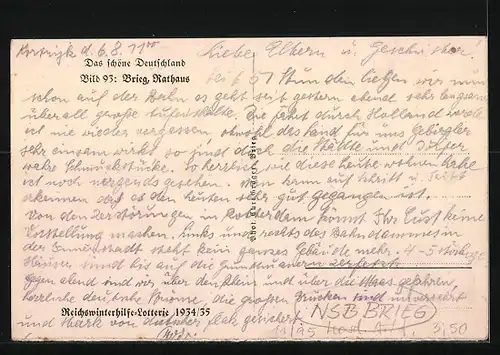 Kortrijk d. 6.8. 11⁰⁰
Liebe Eltern u. Geschwister!
Das schöne Deutschland
Bild 93: Brieg, Rathaus
Seit 51 Stunden liegen wir nun
schon auf der Bahn es geht seit gestern abend sehr langsam
überall große Aufenthalte. Die Fahrt durch Holland werde
ich nie wieder vergessen obwohl das Land für uns Gebirgler
sehr einsam wirkt so sind doch die Städte und Dörfer
wahre Schmuckstücke. So herrlich wie diese Leute wohnen habe
ich noch nirgends gesehen. Man kann auf Schritt u. Tritt
erkennen daß es den Leuten sehr gut gegangen ist.
Von den Zerstörungen in Rotterdam könnt Ihr Euch keine
Vorstellung machen. Links und rechts des Bahndammes in
der Innenstadt steht kein ganzes Gebäude mehr. 4-5 stöckige
Häuser sind bis auf die Grundmauern zerstört
Gegen abend sind wir über den Rhein und über die Maas gefahren,
herrliche deutsche Ströme, die großen Brücken sind unversehrt
und stark von deutscher Flak gesichert
Reichswinterhilfe-Lotterie 1934/35
NSB BRIEG
11/95
3,50